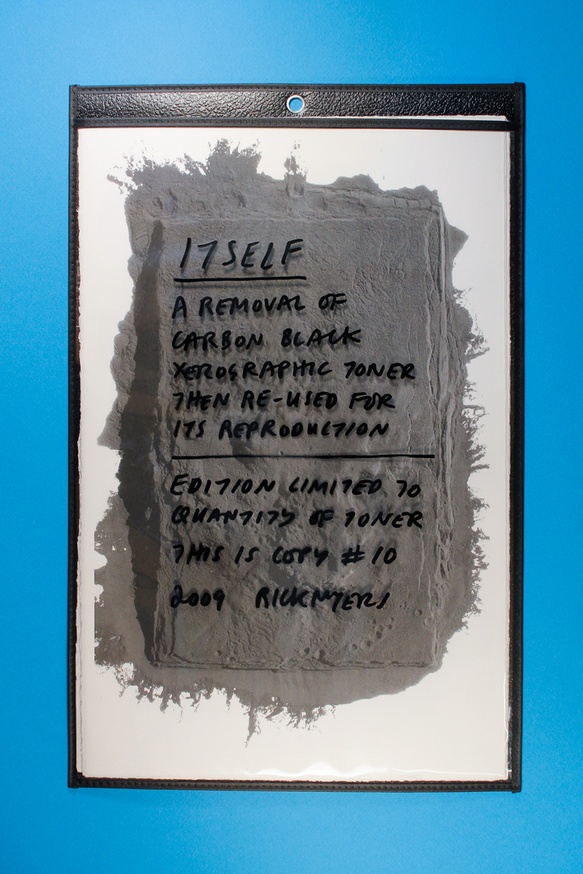 ITSELF
A REMOVAL OF
CARBON BLACK
XEROGRAPHIC TONER
THEN RE-USED FOR
ITS REPRODUCTION
EDITION LIMITED TO
QUANTITY OF TONER
THIS IS COPY #10
2009 RICK MYERS